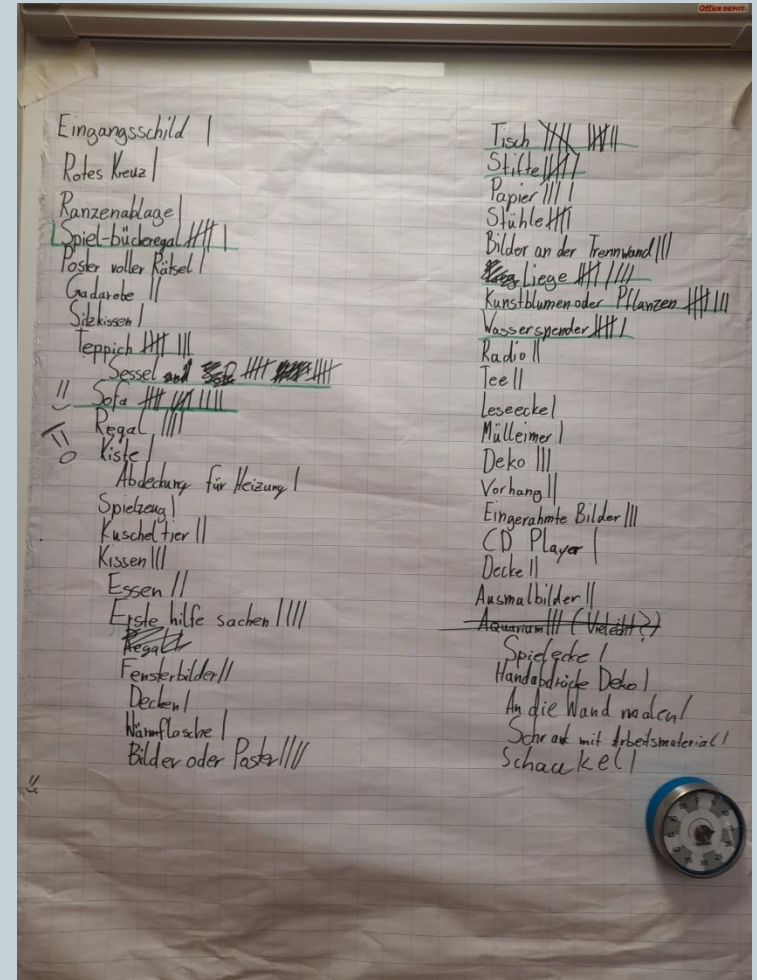 Office DEPOT
Eingangsschild |
Rotes Kreuz |
Ranzenablage |
Spiel-bücheregal |||| |
Poster voller Rätsel |
Gadarobe ||
Sitzkissen |
Teppich |||| |||
Sessel and |||| ||||
Sofa |||| |||| ||||
Regal ||||
Kiste |
Abdeckung für Heizung |
Spielzeug |
Kuscheltier ||
Kissen |||
Essen ||
Erste hilfe sachen ||||
Regal
Fensterbilder ||
Decken |
Wärmflasche |
Bilder oder Poster ||||
Tisch |||| |||| ||
Stifte |||| |
Papier ||||
Stühle ||||
Bilder an der Trennwand |||
Liege |||| ||||
Kunstblumen oder Pflanzen |||| |||
Wasserspender |||| |
Radio ||
Tee ||
Leseecke |
Mülleimer |
Deko |||
Vorhang ||
Eingerahmte Bilder |||
CD Player |
Decke ||
Ausmalbilder ||
Aquarium ||| (Vieleicht?)
Spielecke |
Handabdrücke Deko |
An die Wand malen |
Schrank mit Arbeitsmaterial |
Schaukel |